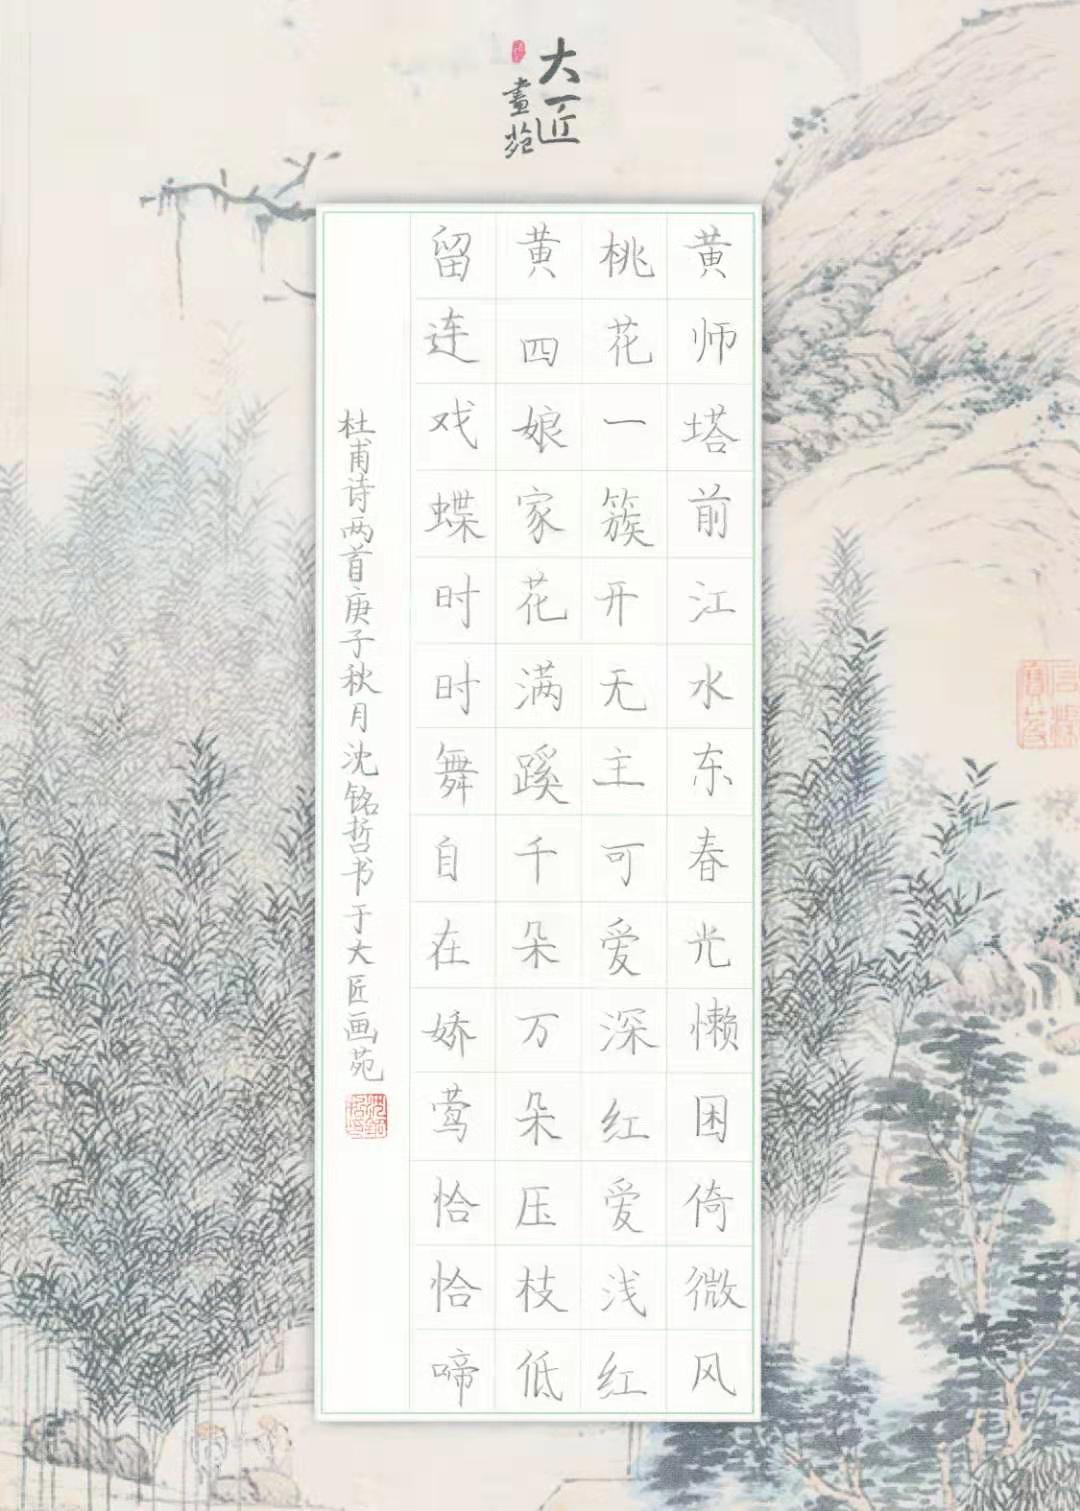 大匠
畫苑
黄师塔前江水东春光懒困倚微风
桃花一簇开无主可爱深红爱浅红
黄四娘家花满蹊千朵万朵压枝低
留连戏蝶时时舞自在娇莺恰恰啼
杜甫诗两首庚子秋月沈铭哲书于大匠画苑